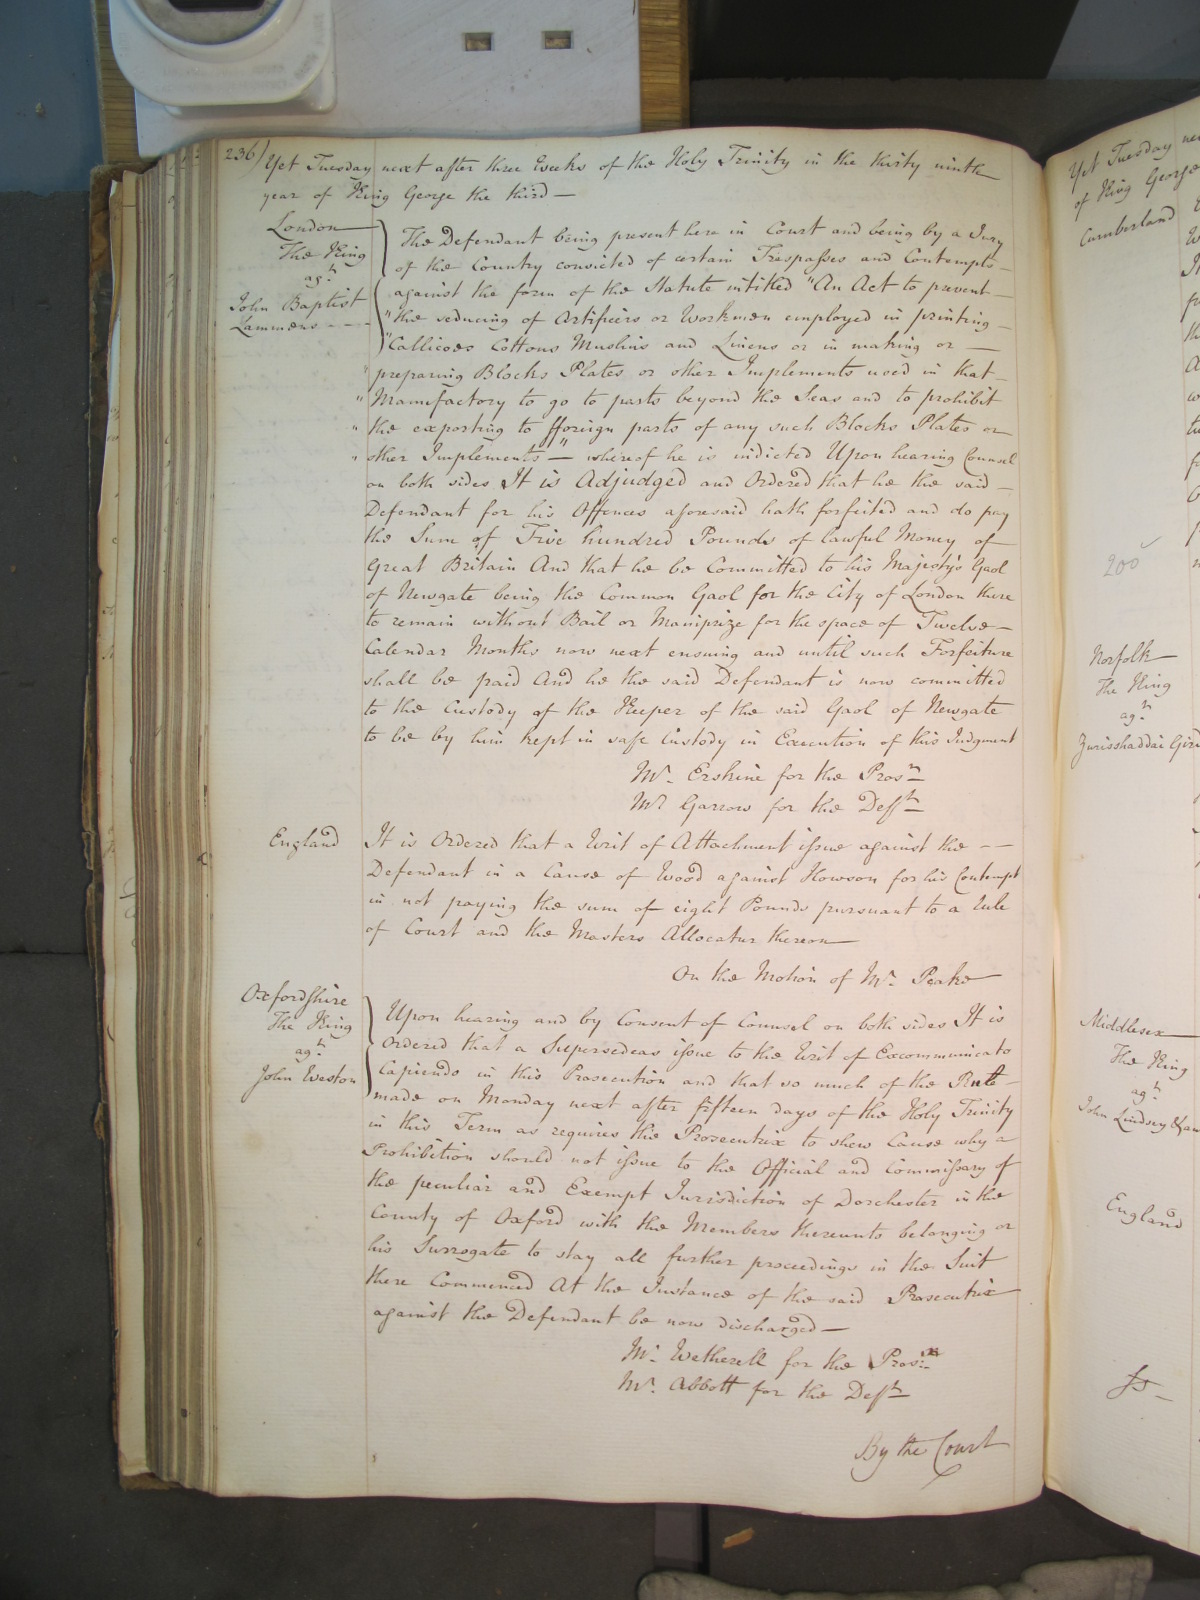 236/ Yet Tuesday next after three Weeks of the Holy Trinity in the thirty ninth
year of King George the third —
London
The King
agt.
John Baptist
Lammens - - -
The Defendant being present here in Court and being by a Jury
of the Country convicted of certain Trespasses and Contempts —
against the form of the Statute intitled "An Act to prevent —
"the seducing of Artificers or Workmen employed in printing —
"Callicoes Cottons Muslins and Linens or in making or —
"preparing Blocks Plates or other Implements used in that —
"Manufactory to go to parts beyond the Seas and to prohibit
"the exporting to fforeign parts of any such Blocks Plates or
"other Implements" — whereof he is indicted Upon hearing Counsel
on both sides It is Adjudged and Ordered that he the said —
Defendant for his Offences aforesaid hath forfeited and do pay
the Sum of Five hundred Pounds of lawful Money of
Great Britain And that he be Committed to his Majesty's Gaol
of Newgate being the Common Gaol for the City of London there
to remain without Bail or Mainprize for the space of Twelve —
Calendar Months now next ensuing and until such Forfeiture
shall be paid And he the said Defendant is now committed
to the Custody of the Keeper of the said Gaol of Newgate
to be by him kept in safe Custody in Execution of this Judgment
Mr. Erskine for the Prosn
Mr Garrow for the Defft
England
It is Ordered that a Writ of Attachment issue against the - -
Defendant in a Cause of Wood against Howson for his Contempt
in not paying the sum of eight Pounds pursuant to a Rule
of Court and the Masters Allocatur thereon —
On the Motion of Mr. Peake
Oxfordshire
The King
agt.
John Weston
Upon hearing and by Consent of Counsel on both sides It is
Ordered that a Supersedeas issue to the Writ of Excommunicato
Capiendo in this Prosecution and that so much of the Rule —
made on Monday next after fifteen days of the Holy Trinity
in this Term as requires the Prosecutrix to shew Cause why a
Prohibition should not issue to the Official and Commissary of
the peculiar and Exempt Jurisdiction of Dorchester in the
County of Oxford with the Members thereunto belonging or
his Surrogate to stay all further proceedings in the Suit
there Commenced At the Instance of the said Prosecutrix
against the Defendant be now discharged —
Mr. Wetherell for the Prosix
Mr. Abbott for the Defft
By the Court
Yet Tuesday
of King George
Cumberland
200
Norfolk
The King
agt.
Zurisshaddai
Middlesex
The King
agt.
John Lindsey
England